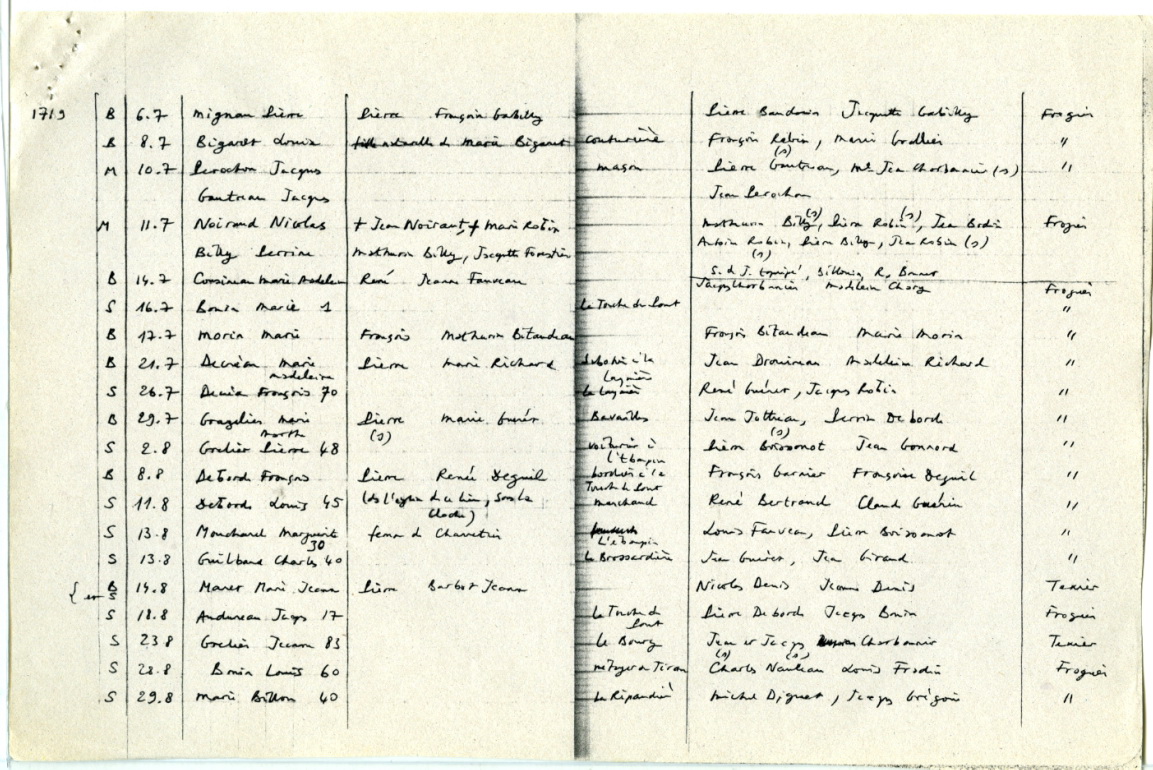 1719 B 6.7 Mignan Pierre Pierre François Gabilly Pierre Baudouin Jacquette Gabilly Frogier
B 8.7 Bigaret Louise fille naturelle de Marie Bigaret couturière François Robin, Marie Grollier "
M 10.7 Perochon Jacques maçon Pierre Gautreau (s), Jean Charbonnier (s) "
Gautreau Jacques Jean Perochon
M 11.7 Noiraud Nicolas + Jean Noiraut, + Marie Robin Mathurin Billy (s), Pierre Robin (s), Jean Bodin Frogier
Billy Perrine Mathurin Billy, Jacquette Forestier Antoine Robin (s), Pierre Billy, Jean Robin (s)
S. de J.
B 14.7 Marie Madeleine René Jeanne Fauveau Jacques Charbonnier Madeleine Frogier
S 16.7 Bonin Marie 1 La Touche du Pont "
B 17.7 Morin Marie François Mathurin Bitaudeau François Bitaudeau Marie Morin "
B 21.7 Marie Madeleine Pierre Marie Richard Jean Madeleine Richard "
S 26.7 François 70 René Guéret, Jacques Robin "
B 29.7 Marie Marthe Pierre (s) Marie Guéret Bavailles Jean Perrin Debord "
S 2.8 Grelier Pierre 48 voiturier à l'Etanpin Pierre Brissonot (s) Jean Gonnord "
B 8.8 Debord François Pierre Renée Deguil bordier à la Touche du Pont François Garnier Françoise Deguil "
S 11.8 Debord Louis 45 (de l'église de ce lieu, sous la cloche) marchand René Bertrand Claude Guérin "
S 13.8 Mouchard Marguerite 30 femme de Charetier L'Etanpin Louis Fauveau, Pierre Brissonot "
S 13.8 Guilbaud Charles 40 La Brossardière Jean Guéret, Jean Giraud "
{ et B S 14.8 Maret Marie Jeanne Pierre Barbot Jeanne Nicolas Denis Jeanne Denis Texier
S 18.8 Andureau Jacques 17 La Touche du Pont Pierre Debord Jacques Bonin Frogier
S 23.8 Grelier Jeanne 83 Le Bourg Jean et Jacques Charbonnier Texier
S 28.8 Bonin Louis 60 métayer au Charles (s) Nauleau (s) Louis Fradin Frogier
S 29.8 Marie Billon 40 La Ripaudière Michel Diguet, Jacques Grégoire "